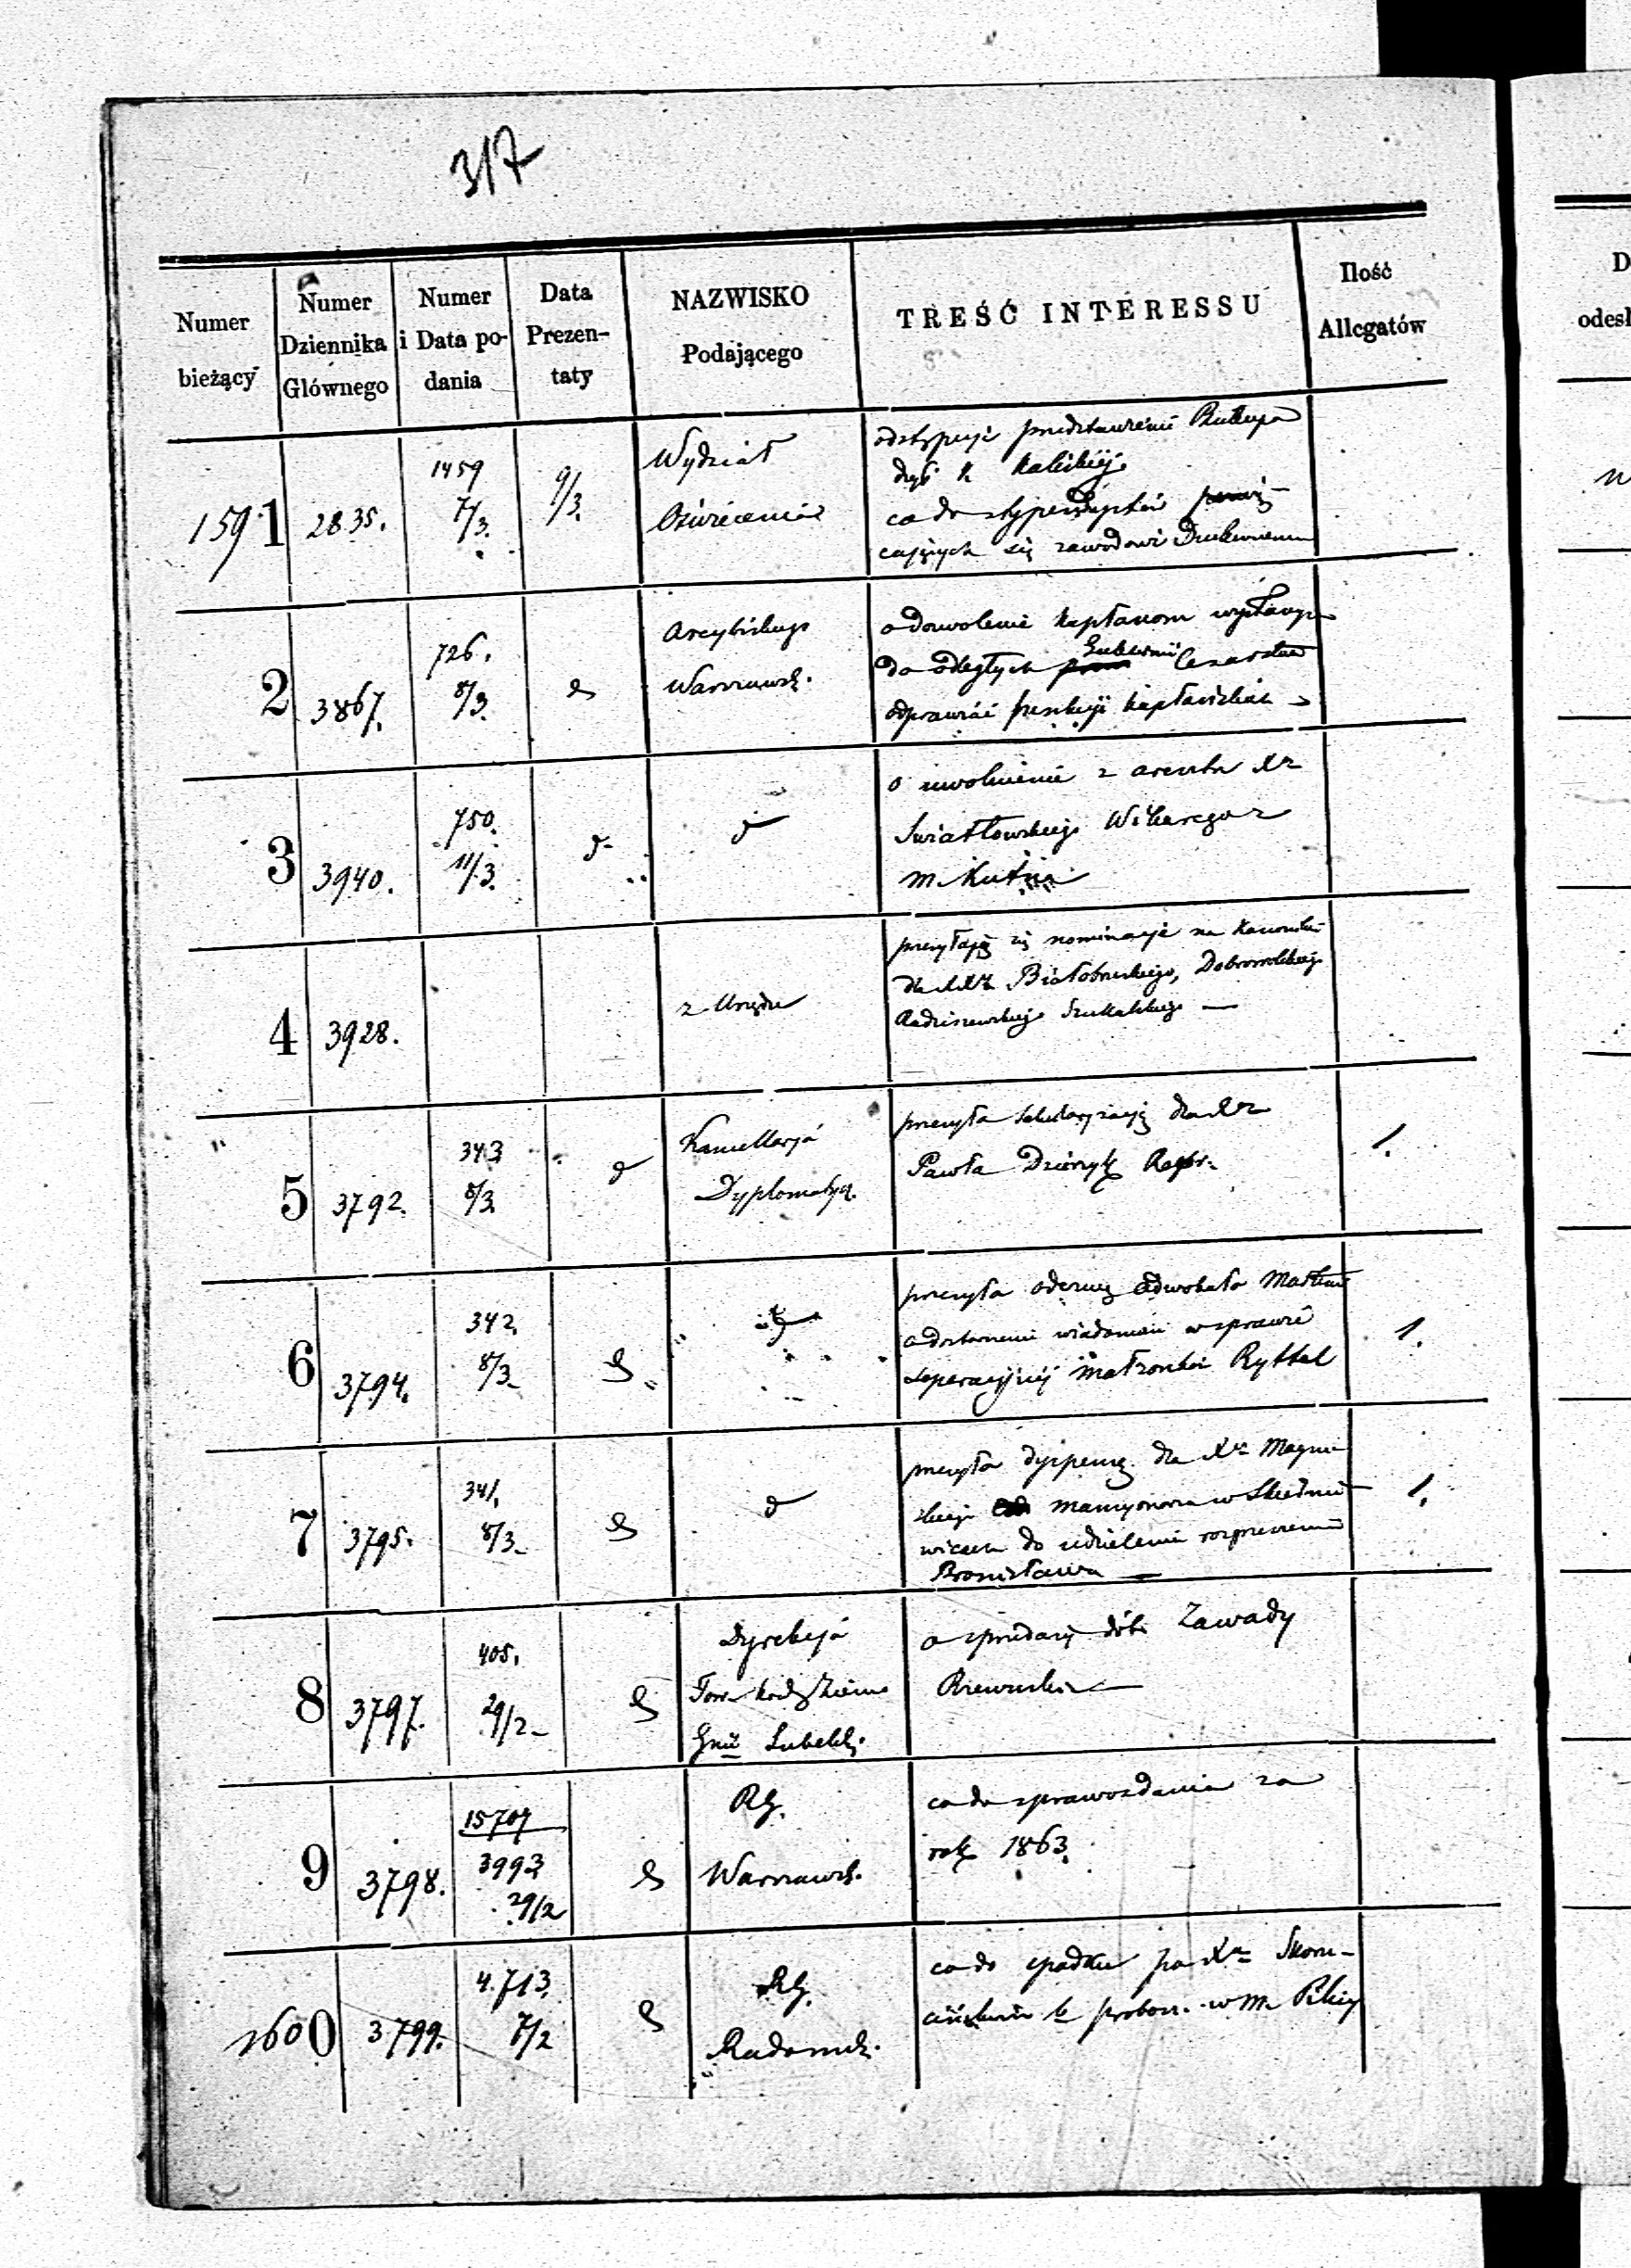 317
Numer bieżący
Numer Dziennika Głównego
Numer i Data podania
Data Prezentaty
NAZWISKO Podającego
TREŚĆ INTERESSU
Ilość Allegatów
1591 2835. 1459 7/3. 9/3. Wydział Oświecenia
odstępuje przedstawienie Biskupa
Kaliskiej
co do stypendystów
cających się zawodowi Duchownemu
2 3867. 726. 8/3. Arcybiskup Warszawsk.
o dozwolenie kapłanom wysłanym
do odległych Gubernii Cesarstwa
odprawiać funkcje kapłańskie
3 3940. 750. 11/3. d
o uwolnienie z aresztu Xa
Swiatłowskiego Wikarego z
m. Kutna
4 3928. z Urzędu
przesyłają się nominacje na Kanoników
dla XXy Białobrzeskiego, Dobrowolskiego
Radziszewskiego Szukalskiego —
5 3792. 343 8/3. d Kancellarja Dyplomatycz.
przesyła sekularyzację dla Xa
Pawła
1.
6 3794. 342. 8/3. d
przesyła odezwę Adwokata
o dostarczenie wiadomości w sprawie
separacyjnej małżonków Ryttel
1.
7 3795. 341. 8/3. d
przesyła dyspensę dla Xa
skiego mansyonarza w Skiernie-
wicach do udzielenia rozgrzeszenia
Bronisława —
1.
8 3797. 405. 29/2. Dyrekcja Tow. Kred. Ziems. Gnii Lubelsk.
o sprzedaży dóbr Zawady
9 3798. 15707 3993 29/2 RG. Warszawsk.
co do sprawozdania za
rok 1863.
1600 3799. 4.713. 7/2 RG. Radomsk.
co do spadku po Xu
prob. w m. Pilicy
D
odesł